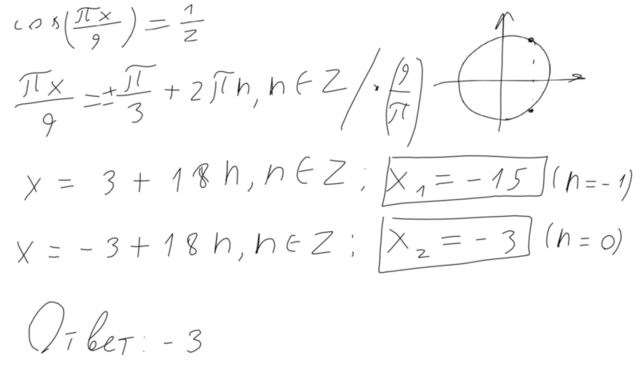 cos(πx/9) = 1/2
πx/9 = ±π/3 + 2πn, n ∈ Z / · (9/π)
x = 3 + 18n, n ∈ Z; x₁ = -15 (n = -1)
x = -3 + 18n, n ∈ Z; x₂ = -3 (n = 0)
Ответ: -3